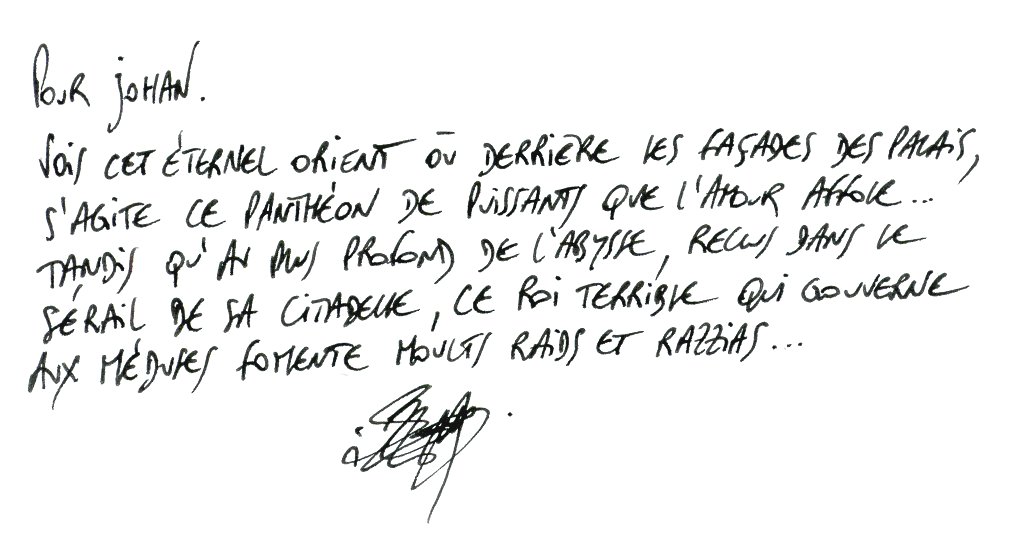 Pour Johan.
Vois cet éternel Orient où derrière les façades des palais,
s'agite ce panthéon de puissants que l'amour affole...
Tandis qu'au plus profond de l'abysse, reclus dans le
sérail de sa citadelle, ce roi terrible qui gouverne
aux méduses fomente moults raids et razzias...